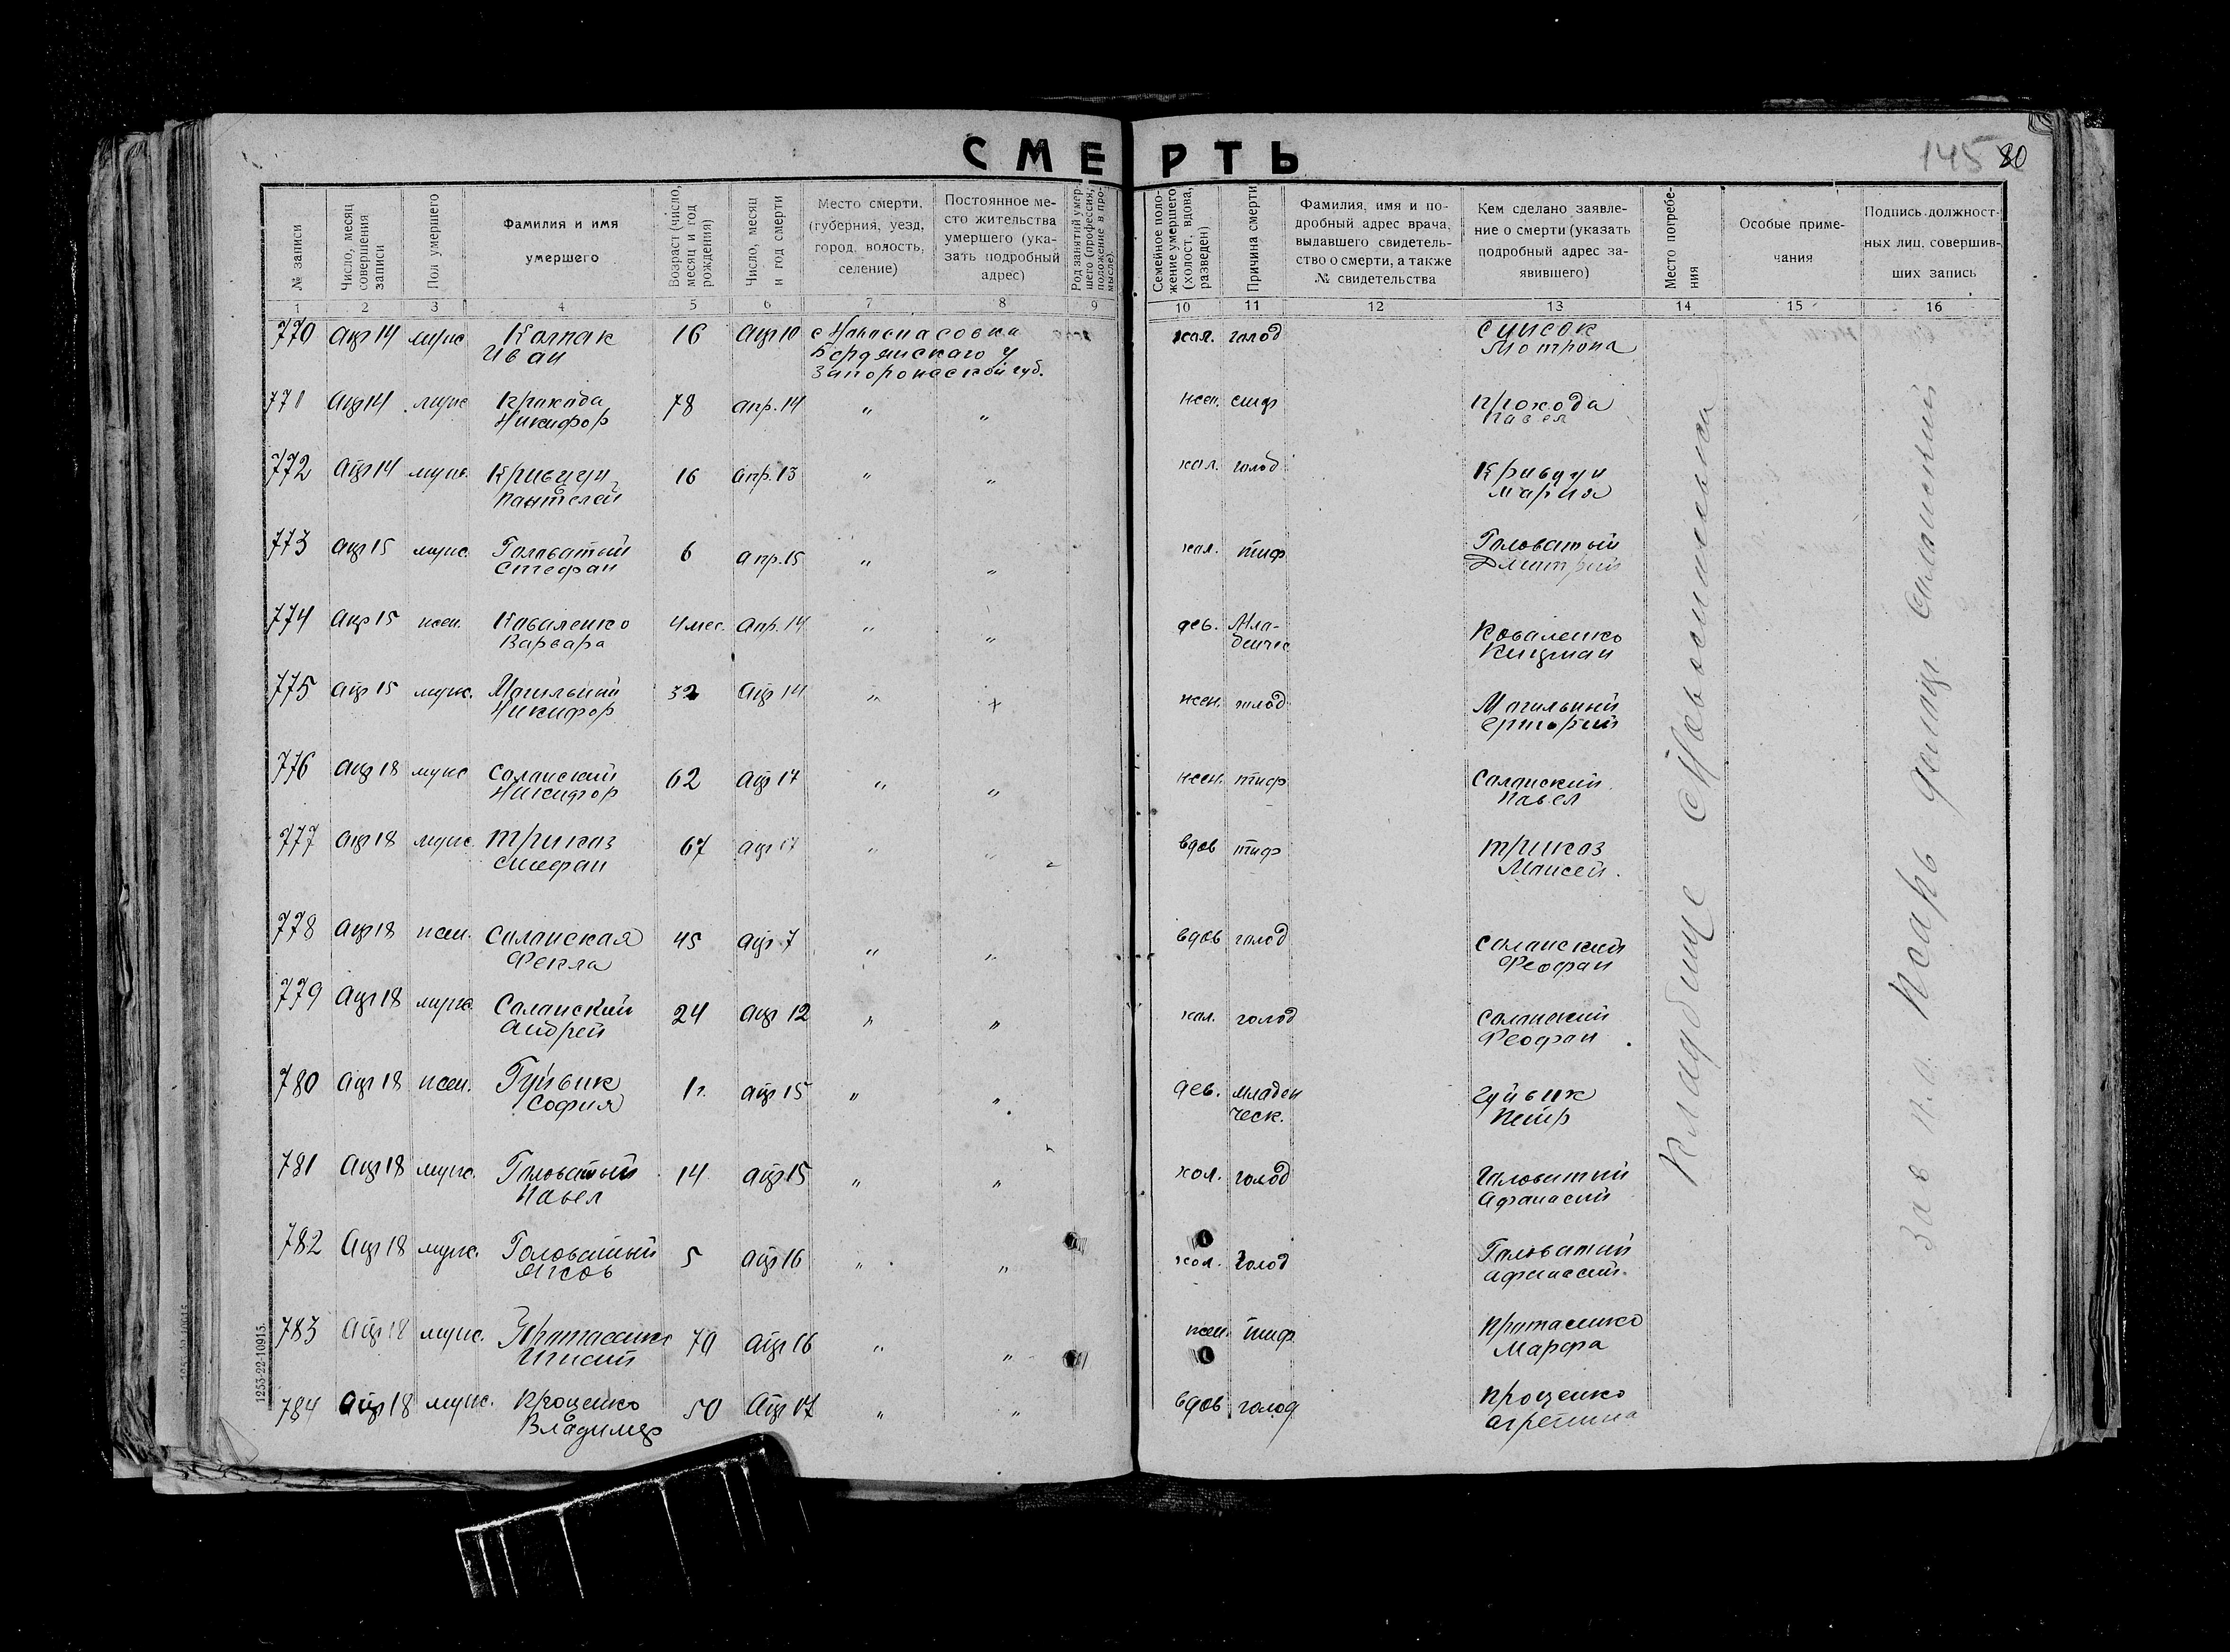 СМЕРТЬ
145 80
№ записи
Число, месяц совершения записи
Пол умершего
Фамилия и имя умершего
Возраст (число, месяц и год рождения)
Число, месяц и год смерти
Место смерти, (губерния, уезд, город, волость, селение)
Постоянное место жительства умершего (указать подробный адрес)
Род занятий умершего (профессия, положение в промысле).
Семейное положение умершего (холост, вдова, разведен)
Причина смерти
Фамилия, имя и подробный адрес врача, выдавшего свидетельство о смерти, а также № свидетельства
Кем сделано заявление о смерти (указать подробный адрес заявившего)
Место погребения
Особые примечания
Подпись должностных лиц, совершивших запись
1 2 3 4 5 6 7 8 9 10 11 12 13 14 15 16
770 апр 14 муж Колпак 16 апр 10 с Новоспасовка хол. голод
Иван Бердянскаго у Мотрона
Запорожской губ.
771 апр 14 муж Прохода 78 апр. 14 " " жен. Прохода
Никифор Павел
772 апр 14 муж. Кривцун 16 апр. 13 " " хол. голод Кривцун
Пантелей Мария
773 апр 15 муж. Головатый 6 апр. 15 " " хол. тиф Головатый
Стефан Дмитрий
774 апр 15 жен. Коваленко 4 мес. апр. 14 " " дев. Мла- Коваленко
Варвара денчес
775 апр 15 муж. Могильный 32 апр 14 " " жен. голод Могильный
Никифор Григорий
776 апр 18 муж Саланский 62 апр 17 " " жен. тиф Саланский
Никифор Павел
777 апр 18 муж. 67 апр 17 " " вдов тиф
Стефан Моисей.
778 апр 18 жен. Саланская 45 апр 7 " " вдов голод Саланский
Фекла Феофан
779 апр 18 муж. Саланский 24 апр 12 " " хол. голод Саланский
Андрей Феофан
780 апр 18 жен. Гуйвик 1 г. апр 15 " " дев. младен Гуйвик
София ческ. Петр
781 апр 18 муж. Головатый 14 апр 15 " " хол. голод Головатый
Павел Афанасий
782 апр 18 муж. Головатый 5 апр 16 " " хол. голод Головатий
Яков Афанасий
783 апр 18 муж. 70 апр 16 " " жен. тиф
Марфа
784 апр 18 муж. Проценко 50 апр 17 " " вдов голод Проценко
Владимир Агрепина
Кладбище с Новоспасовка
Зав п.о. Писарь Саланский
1253-22-10915.